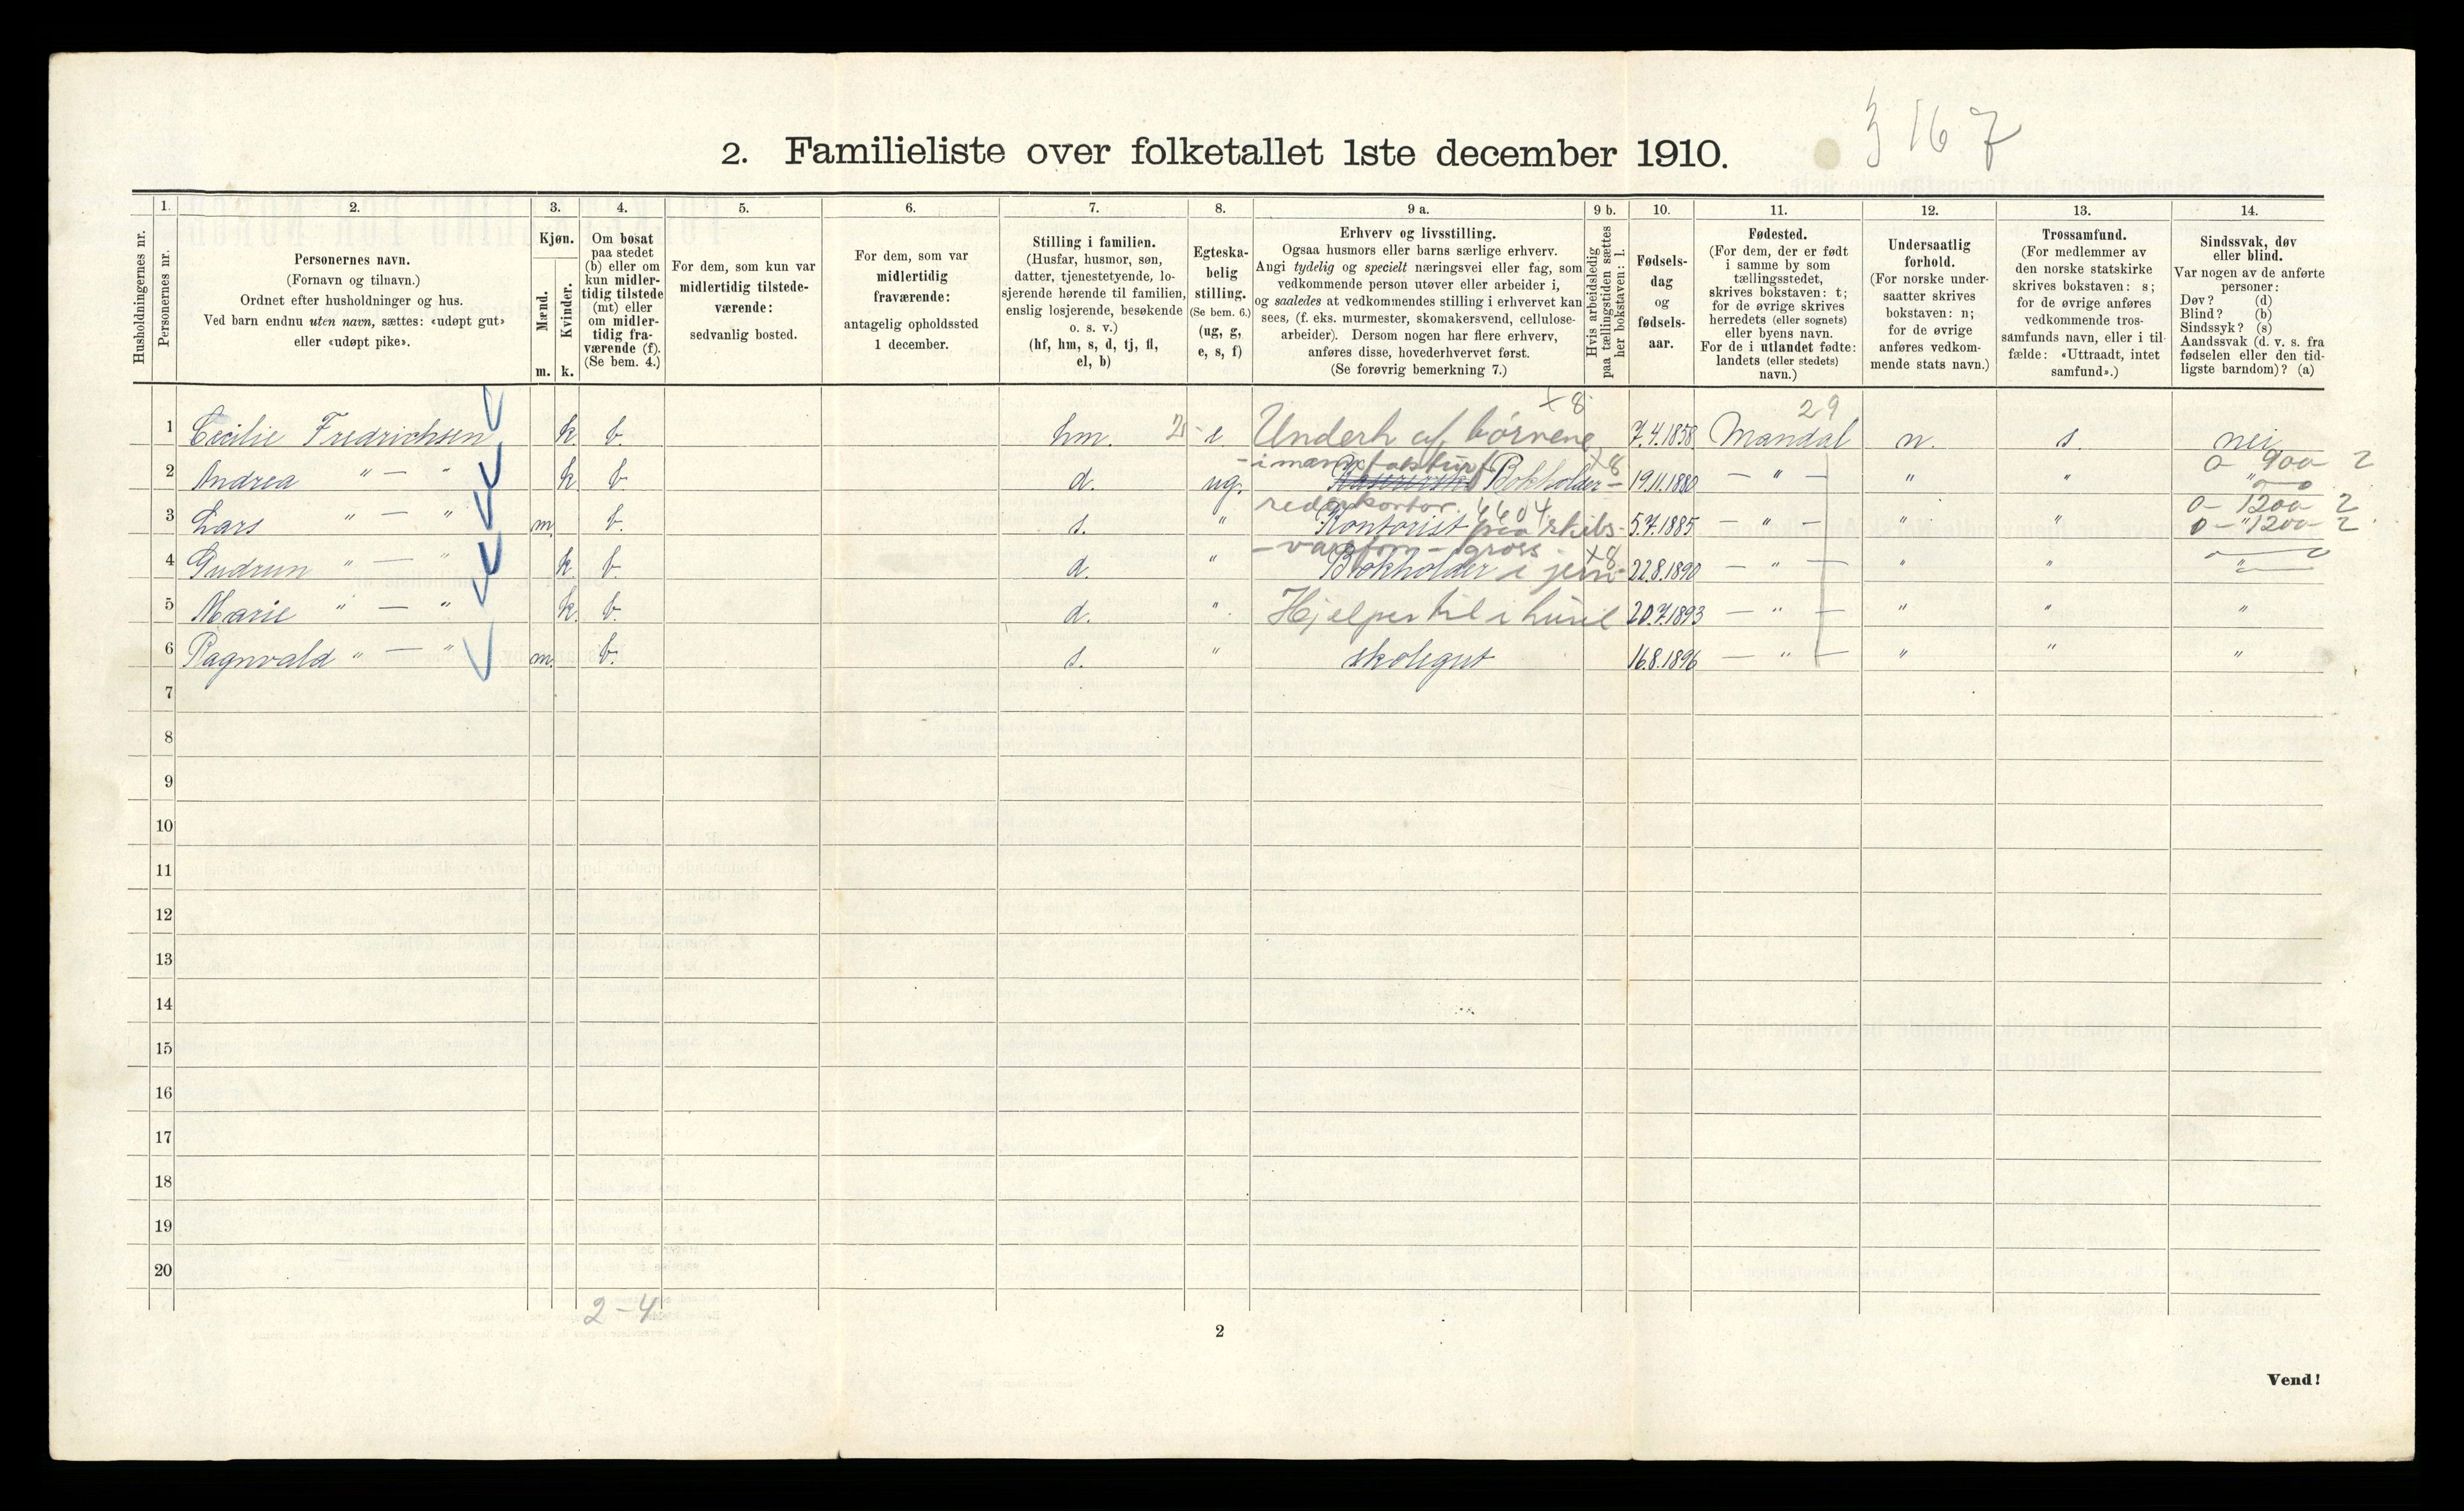 3167
2. Familieliste over folketallet 1ste december 1910.
Husholdningernes nr.
1.
Personernes nr.
2.
Personernes navn.
(Fornavn og tilnavn.)
Ordnet efter husholdninger og hus.
Ved barn endnu uten navn, sættes: «udøpt gut»
eller «udøpt pike».
3.
Kjøn.
Mænd.
Kvinder.
m. k.
4.
Om bosat
paa stedet
(b) eller om
kun midler-
tidig tilstede
(mt) eller
om midler-
tidig fra-
værende (f).
(Se bem. 4.)
5.
For dem, som kun var
midlertidig tilstede-
værende:
sedvanlig bosted.
6.
For dem, som var
midlertidig
fraværende:
antagelig opholdssted
1 december.
7.
Stilling i familien.
(Husfar, husmor, søn,
datter, tjenestetyende, lo-
sjerende hørende til familien,
enslig losjerende, besøkende
o. s. v.)
(hf, hm, s, d, tj, fl,
el, b)
8.
Egteska-
belig
stilling.
(Se bem. 6.)
(ug, g,
e, s, f)
9 a.
Erhverv og livsstilling.
Ogsaa husmors eller barns særlige erhverv.
Angi tydelig og specielt næringsvei eller fag, som
vedkommende person utøver eller arbeider i,
og saaledes at vedkommendes stilling i erhvervet kan
sees, (f. eks. murmester, skomakersvend, cellulose-
arbeider). Dersom nogen har flere erhverv,
anføres disse, hovederhvervet først.
(Se forøvrig bemerkning 7.)
9 b.
Hvis arbeidsledig
paa tællingstiden sættes
her bokstaven: l.
10.
Fødsels-
dag
og
fødsels-
aar.
11.
Fødested.
(For dem, der er født
i samme by som
tællingsstedet,
skrives bokstaven: t;
for de øvrige skrives
herredets (eller sognets)
eller byens navn.
For de i utlandet fødte:
landets (eller stedets)
navn.)
12.
Undersaatlig
forhold.
(For norske under-
saatter skrives
bokstaven: n;
for de øvrige
anføres vedkom-
mende stats navn.)
13.
Trossamfund.
(For medlemmer av
den norske statskirke
skrives bokstaven: s;
for de øvrige anføres
vedkommende tros-
samfunds navn, eller i til-
fælde: «Uttraadt, intet
samfund».)
14.
Sindssvak, døv
eller blind.
Var nogen av de anførte
personer:
Døv? (d)
Blind? (b)
Sindssyk? (s)
Aandssvak (d. v. s. fra
fødselen eller den tid-
ligste barndom)? (a)
x8 29
1 Cecilie Fredrichsen k b. hm. e Underh af børnene 7.4.1858 Mandal n. s. nei
x8 0 900 2
2 Andrea " — " k b. d. ug. Bokholder 19.11.1880 — " — " " "
rederkontor. 0 - 1200 2
3 Lars " — " m b. s. " Kontorist paa skibs- 5.7.1885 — " — " " 0 - " 1200 - 2
- gross x8
4 Gudrun " — " k. b. d. " Bokholder i jern- 22.8.1890 — " — " " "
5 Marie " — " k. b. d. " Hjelper til i huset 20.7.1893 — " — " " "
6 Ragnvald " — " m. b. s. " skolegut 16.8.1896 — " — " " "
7
8
9
10
11
12
13
14
15
16
17
18
19
20
2 - 4
2
Vend!